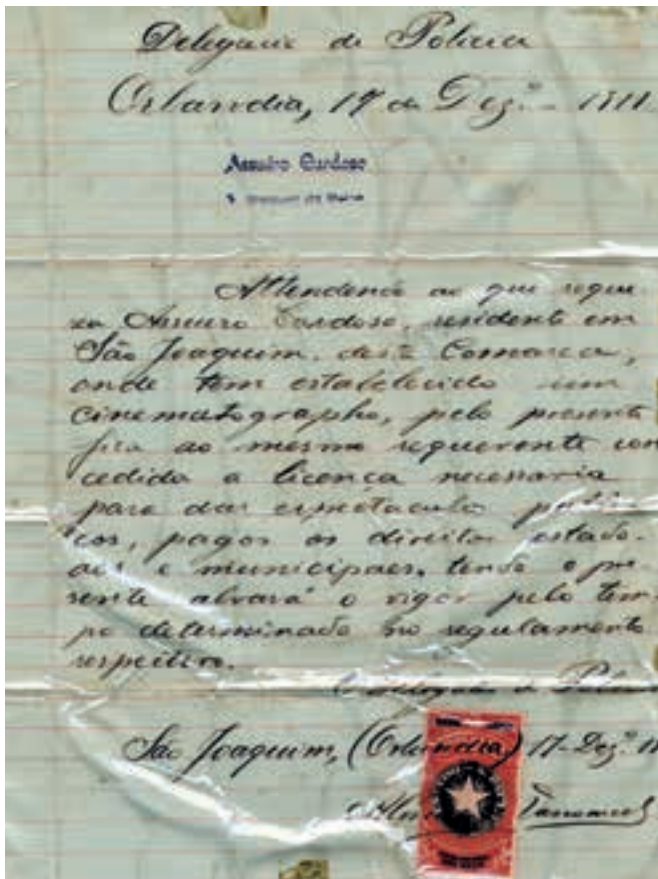 Delegacia de Policia
Orlandia, 17 de Dez.º 1911
Assuero Cardoso
Attendendo ao que reque
reu Assuero Cardoso, residente em
São Joaquim, desta Comarca,
onde tem estabelecido um
cinematographo, pelo presente
fica ao mesmo requerente con
cedida a licença necessaria
para dar espectaculos publi
cos, pagos os direitos estado-
aes e municipaes, tendo o pre-
sente alvará o vigor pelo tem
po determinado no regulamento
respectivo.
Delegado de Policia
São Joaquim, (Orlandia) 17-Dez.º 11